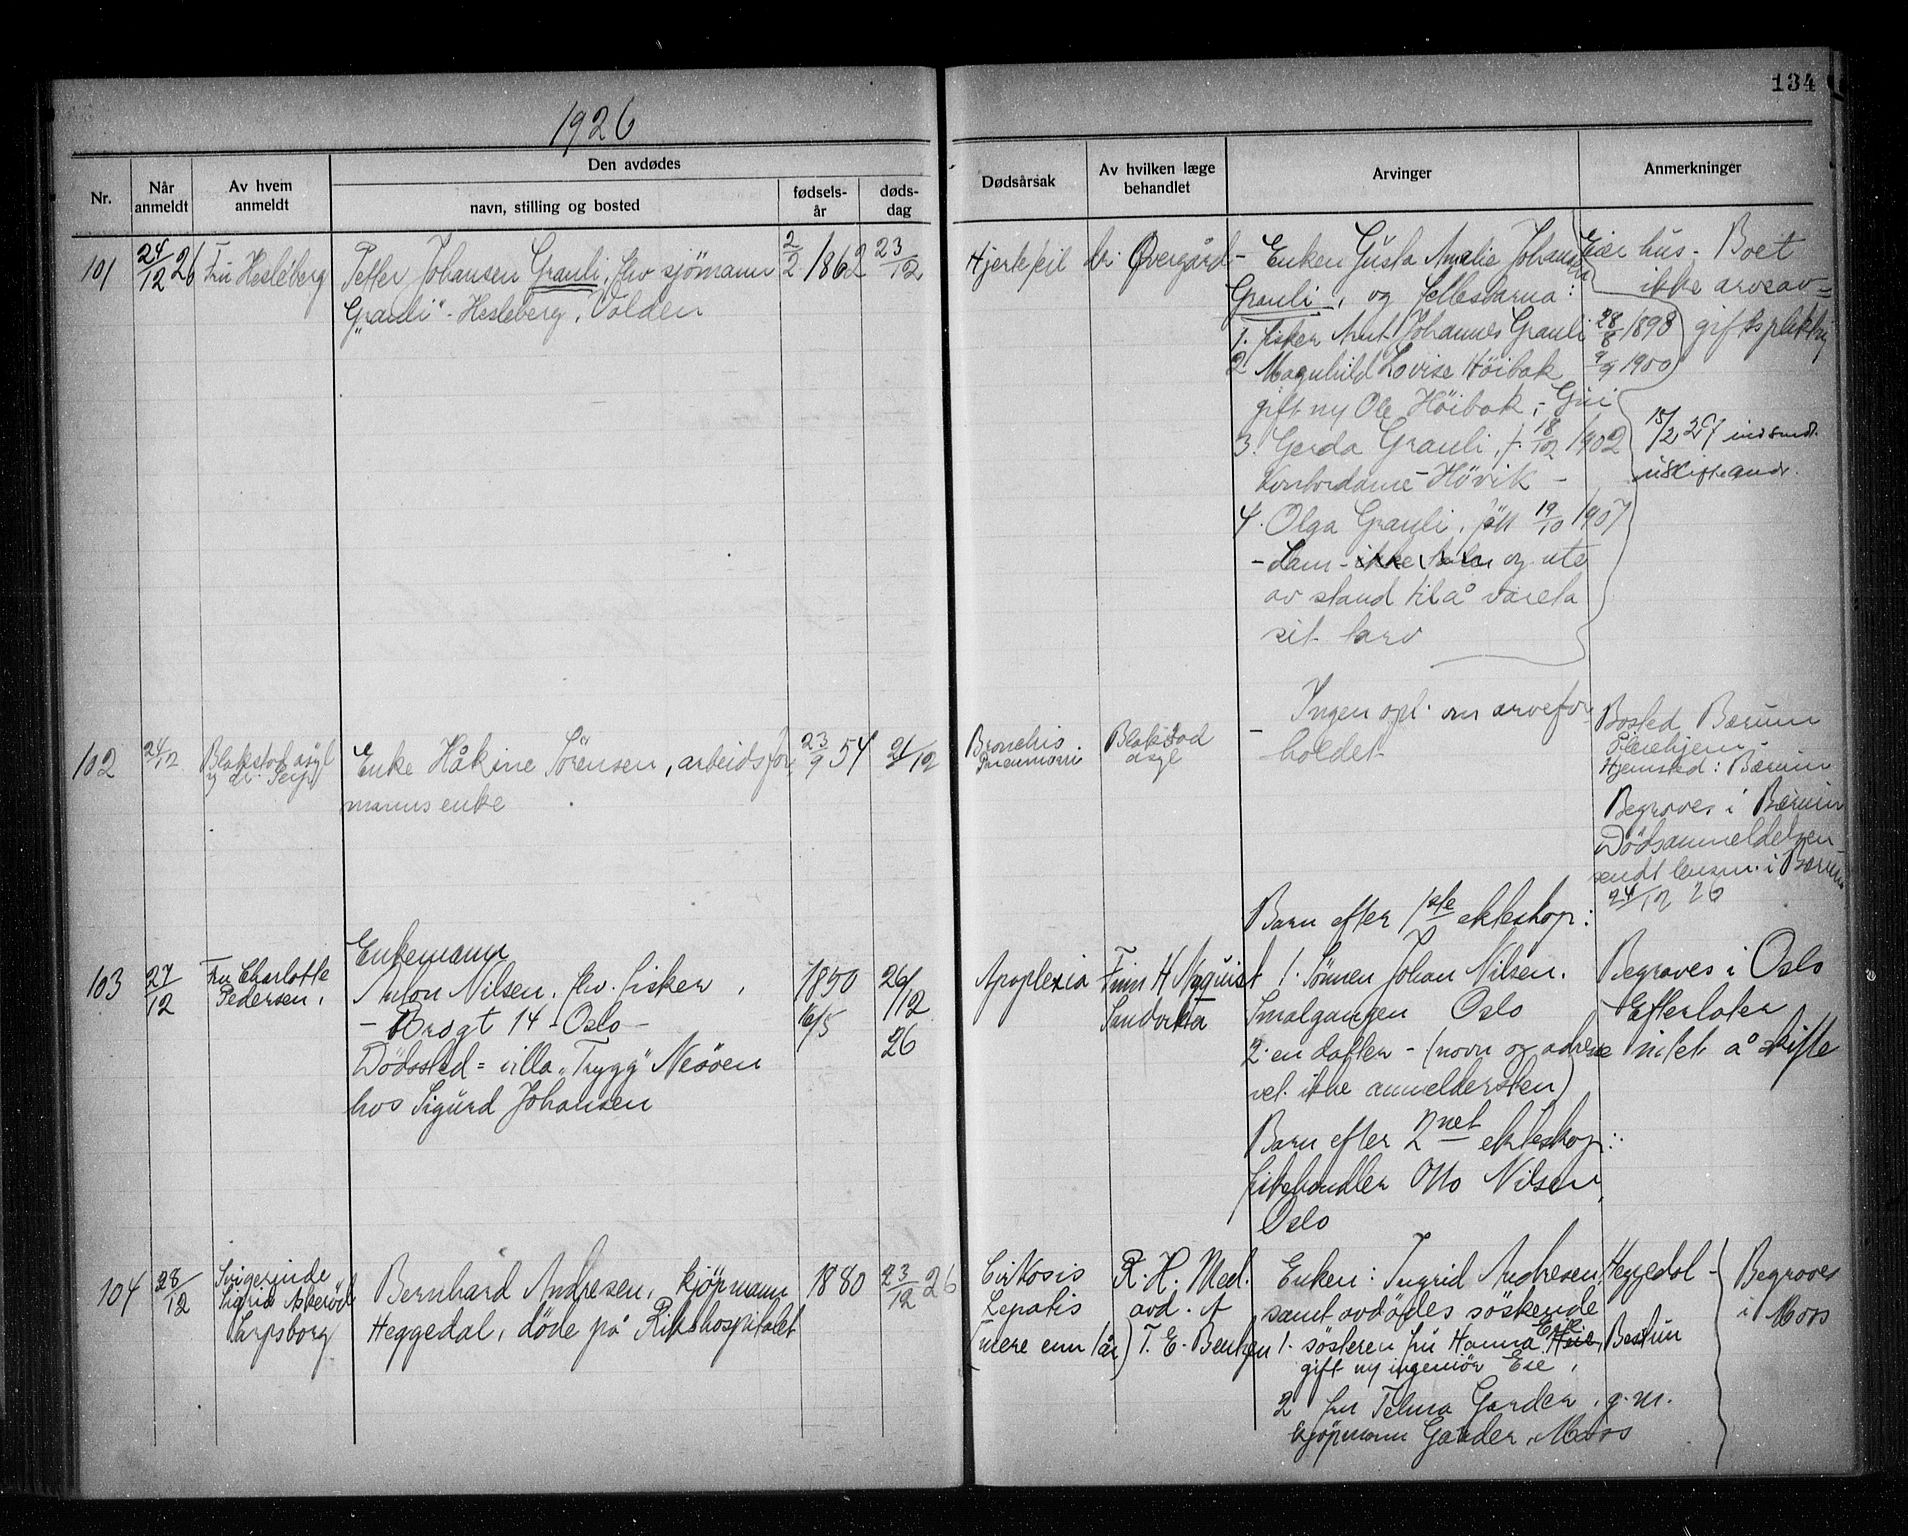 134
1926
Nr.
Når anmeldt
Av hvem anmeldt
Den avdødes
navn, stilling og bosted
fødsels-år
døds-dag
Dødsårsak
Av hvilken læge behandlet
Arvinger
Anmerkninger
101
24/12 26
Fru Hesleberg
Petter Johansen Grauli, fhv sjömann
"Grauli" - Hesleberg, Volden
2/2 1862
23/12
Hjertefeil
dr. Øvergård
- Enken Gusta Amalie Johansen
Grauli, og fellesbarna:
1. fisker Arnt Johannes Grauli 28/8 1898
2. Magnhild Lovise Höibak 9/9 1900
gift m/ Ole Höibak,
3. Gerda Grauli, f. 18/10 1902
kontordame - Hövik -
4. Olga Grauli, född 19/10 1907
- Lam - ikke og ute
av stand til å vareta
sit tarv
Eier hus. Boet
ikke arveav=
giftspliktig
15/2 27 indsendt
uskifteandr.
102
24/12
Blakstad asyl
v/ dr.
Enke Håkine Sörensen, arbeidsfor
manns enke
23/9 54
21/12
Bronchis
Pneumoni
Blakstad
asyl
- Ingen opl. om arvefor
holdet
Bosted Bærum
Pleiehjem
Hjemsted: Bærum
Begraves i Bærum
Dödsanmeldelsen
sendt lensm. i Bærum
24/12 26
103
27/12
Fru Charlotte
Pedersen,
Enkemann
Anton Nilsen, fhv. fisker,
- Brogt 14 - Oslo -
Dödssted = villa "Trygg" Nesöen
hos Sigurd Johansen
1850
16/5
26/12
26
Apoplexia
Finn H Nyquist
Sandvika
Barn efter 1ste ekteskap:
1. Sönnen Johan Nilsen.
Smalgangen Oslo
2. en datter - (navn og adresse
vet ikke anmeldersken)
Barn efter 2net ekteskap:
fiskehandler Otto Nilsen,
Oslo
Begraves i Oslo
Efterlater
intet å skifte
104
28/12
Svigerinde
Sigrid
Sarpsborg
Bernhard Andresen, kjöpmann
Heggedal, döde på Rikshospitalet
1880
23/12 26
Cirkosis
Lepatis
(mere enn 1 år)
R. H. Med.
avd. A
T. E. Bentzen
Enken: Ingrid Andresen, Heggedal -
samt avdödes söskende
1. sösteren fru Hanna Ese, Bestun
gift m/ ingeniör Ese,
2 fru Telma Garder, g. m.
kjöpmann Garder, Moss
Begraves
i Moss